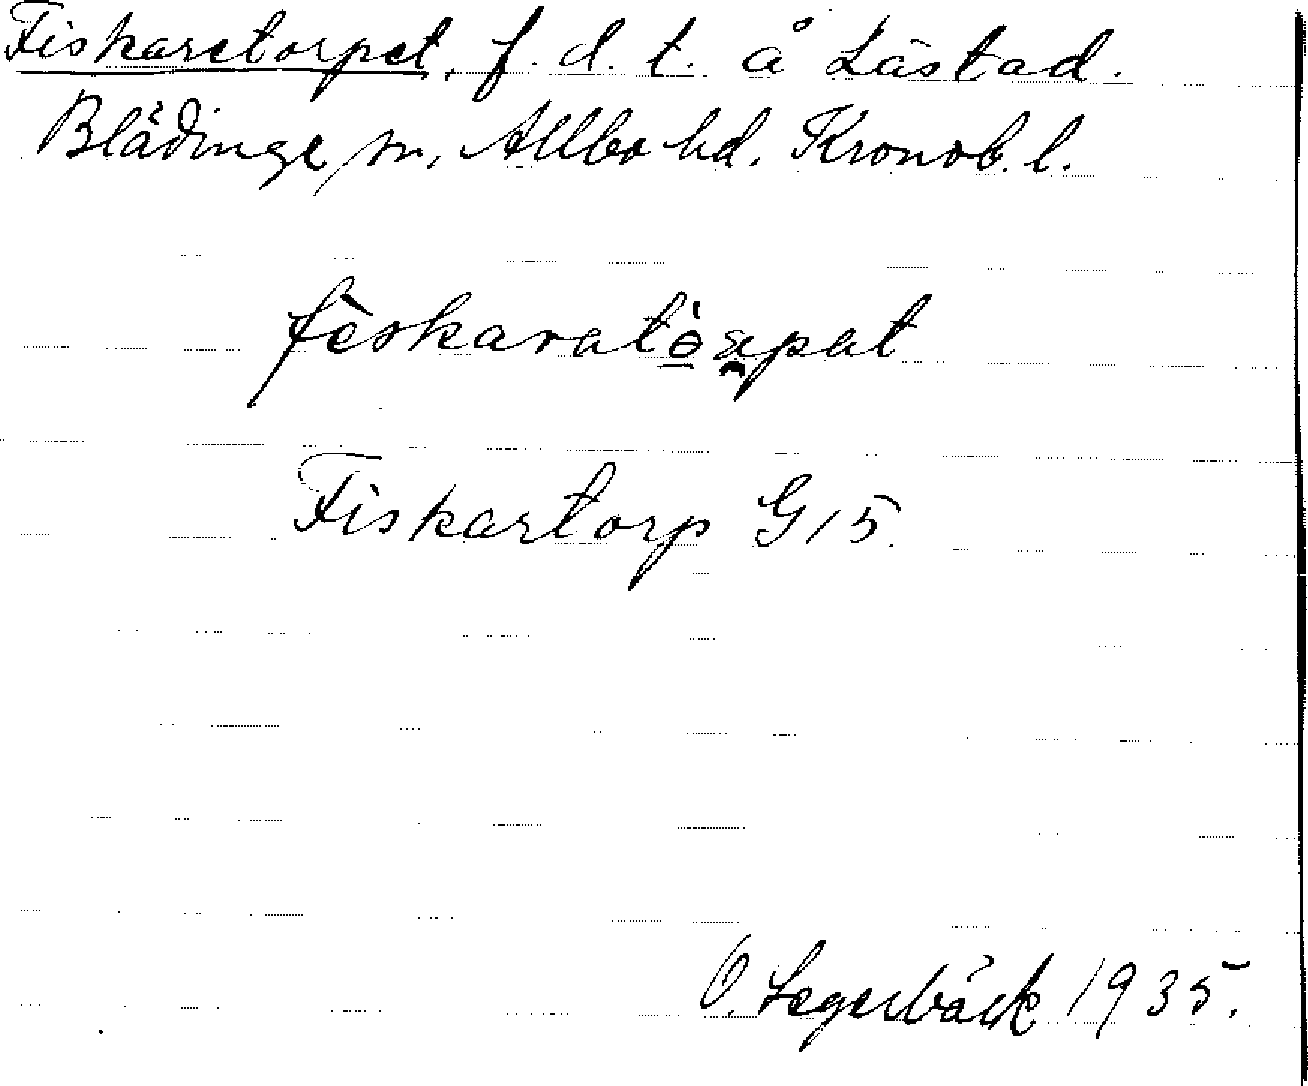 Fiskaretorpet, f. d. t. å Låstad.
Blädinge sn, Allbo hd. Kronob. l.
fèskarató̱a̯pat
Fiskartorp G 15.
O. Segerbäck 1935.